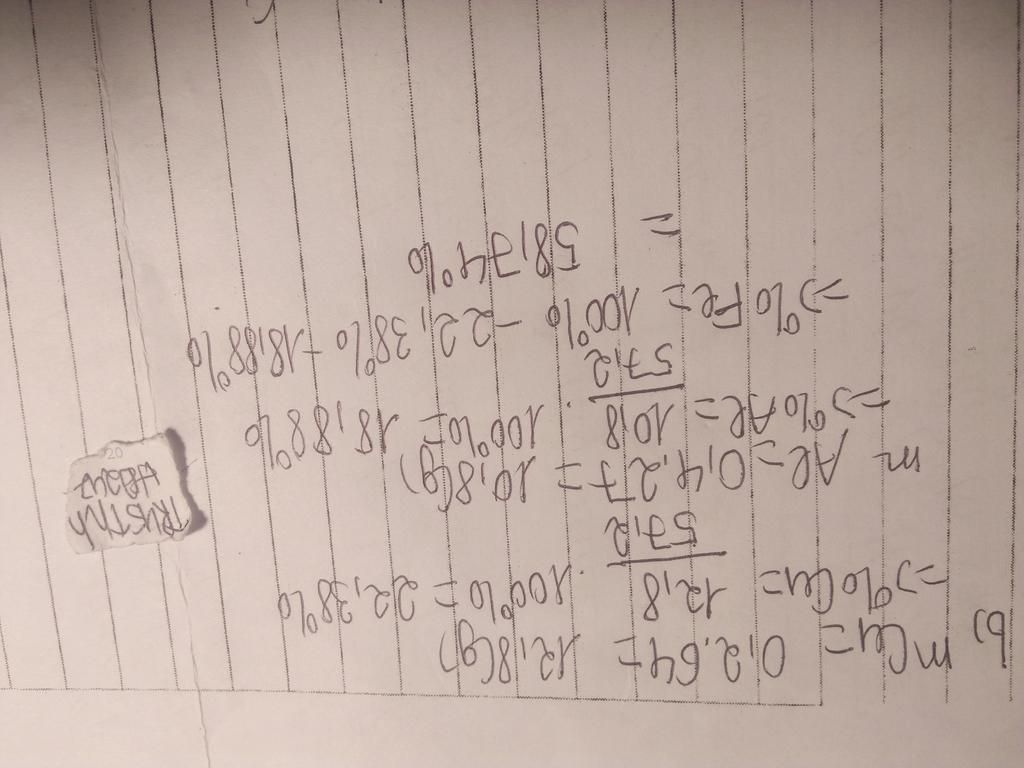 b)
mCu = 0,2.64 = 12,8(g)
=> %Cu = 12,8/57,2 . 100% = 22,38%
m Al = 0,4.27 = 10,8(g)
=> %Al = 10,8/57,2 . 100% = 18,88%
=> %Fe = 100% - 22,38% - 18,88%
= 58,74%
20